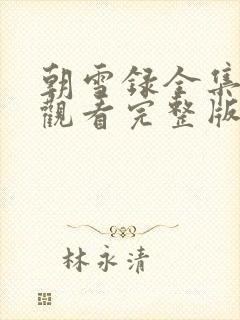 朝雪録全集
觀看完整版
林永清